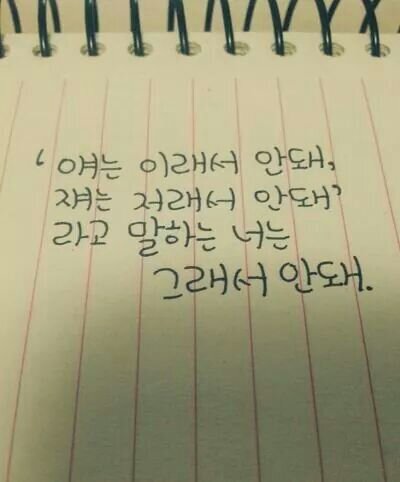 '얘는 이래서 안돼,
쟤는 저래서 안돼'
라고 말하는 너는
그래서 안돼.